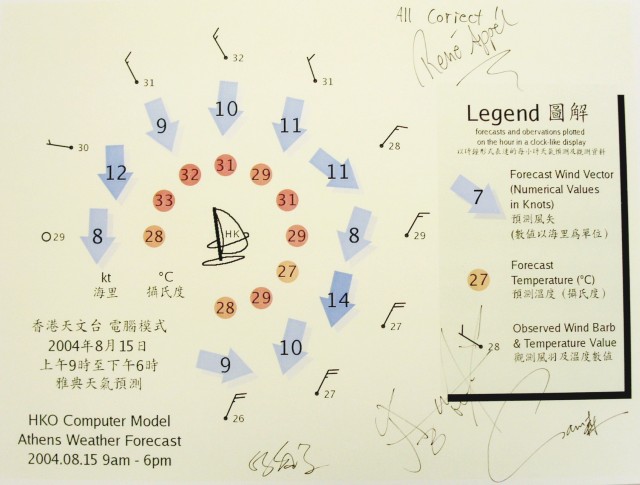 All Correct
René Appel
32
31
31
10
9
11
30
28
Legend 圖解
forecasts and obervations plotted
on the hour in a clock-like display
以時鐘形式表達的每小時天氣預測及觀測資料
12
31
32
29
11
33
31
7
Forecast Wind Vector
(Numerical Values
in Knots)
預測風矢
(數值以海里為單位)
29
8
28
HK
29
8
29
kt
海里
°C
攝氏度
27
27
Forecast
Temperature (°C)
預測溫度 (攝氏度)
28
29
14
27
28
Observed Wind Barb
& Temperature Value
觀測風羽及溫度數值
香港天文台 電腦模式
2004年8月15日
上午9時至下午6時
雅典天氣預測
9
10
27
26
HKO Computer Model
Athens Weather Forecast
2004.08.15 9am - 6pm